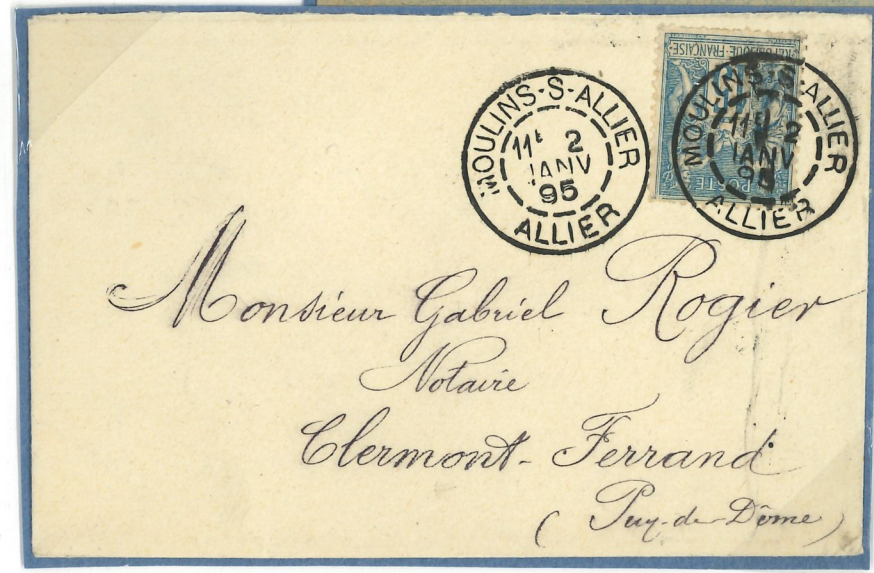 MOULINS-S-ALLIER
11E 2
JANV
95
ALLIER
REPUBLIQUE-FRANÇAISE
POSTE
MOULINS-S-ALLIER
11E 2
JANV
95
ALLIER
Monsieur Gabriel Rogier
Notaire
Clermont-Ferrand
(Puy-de-Dôme)